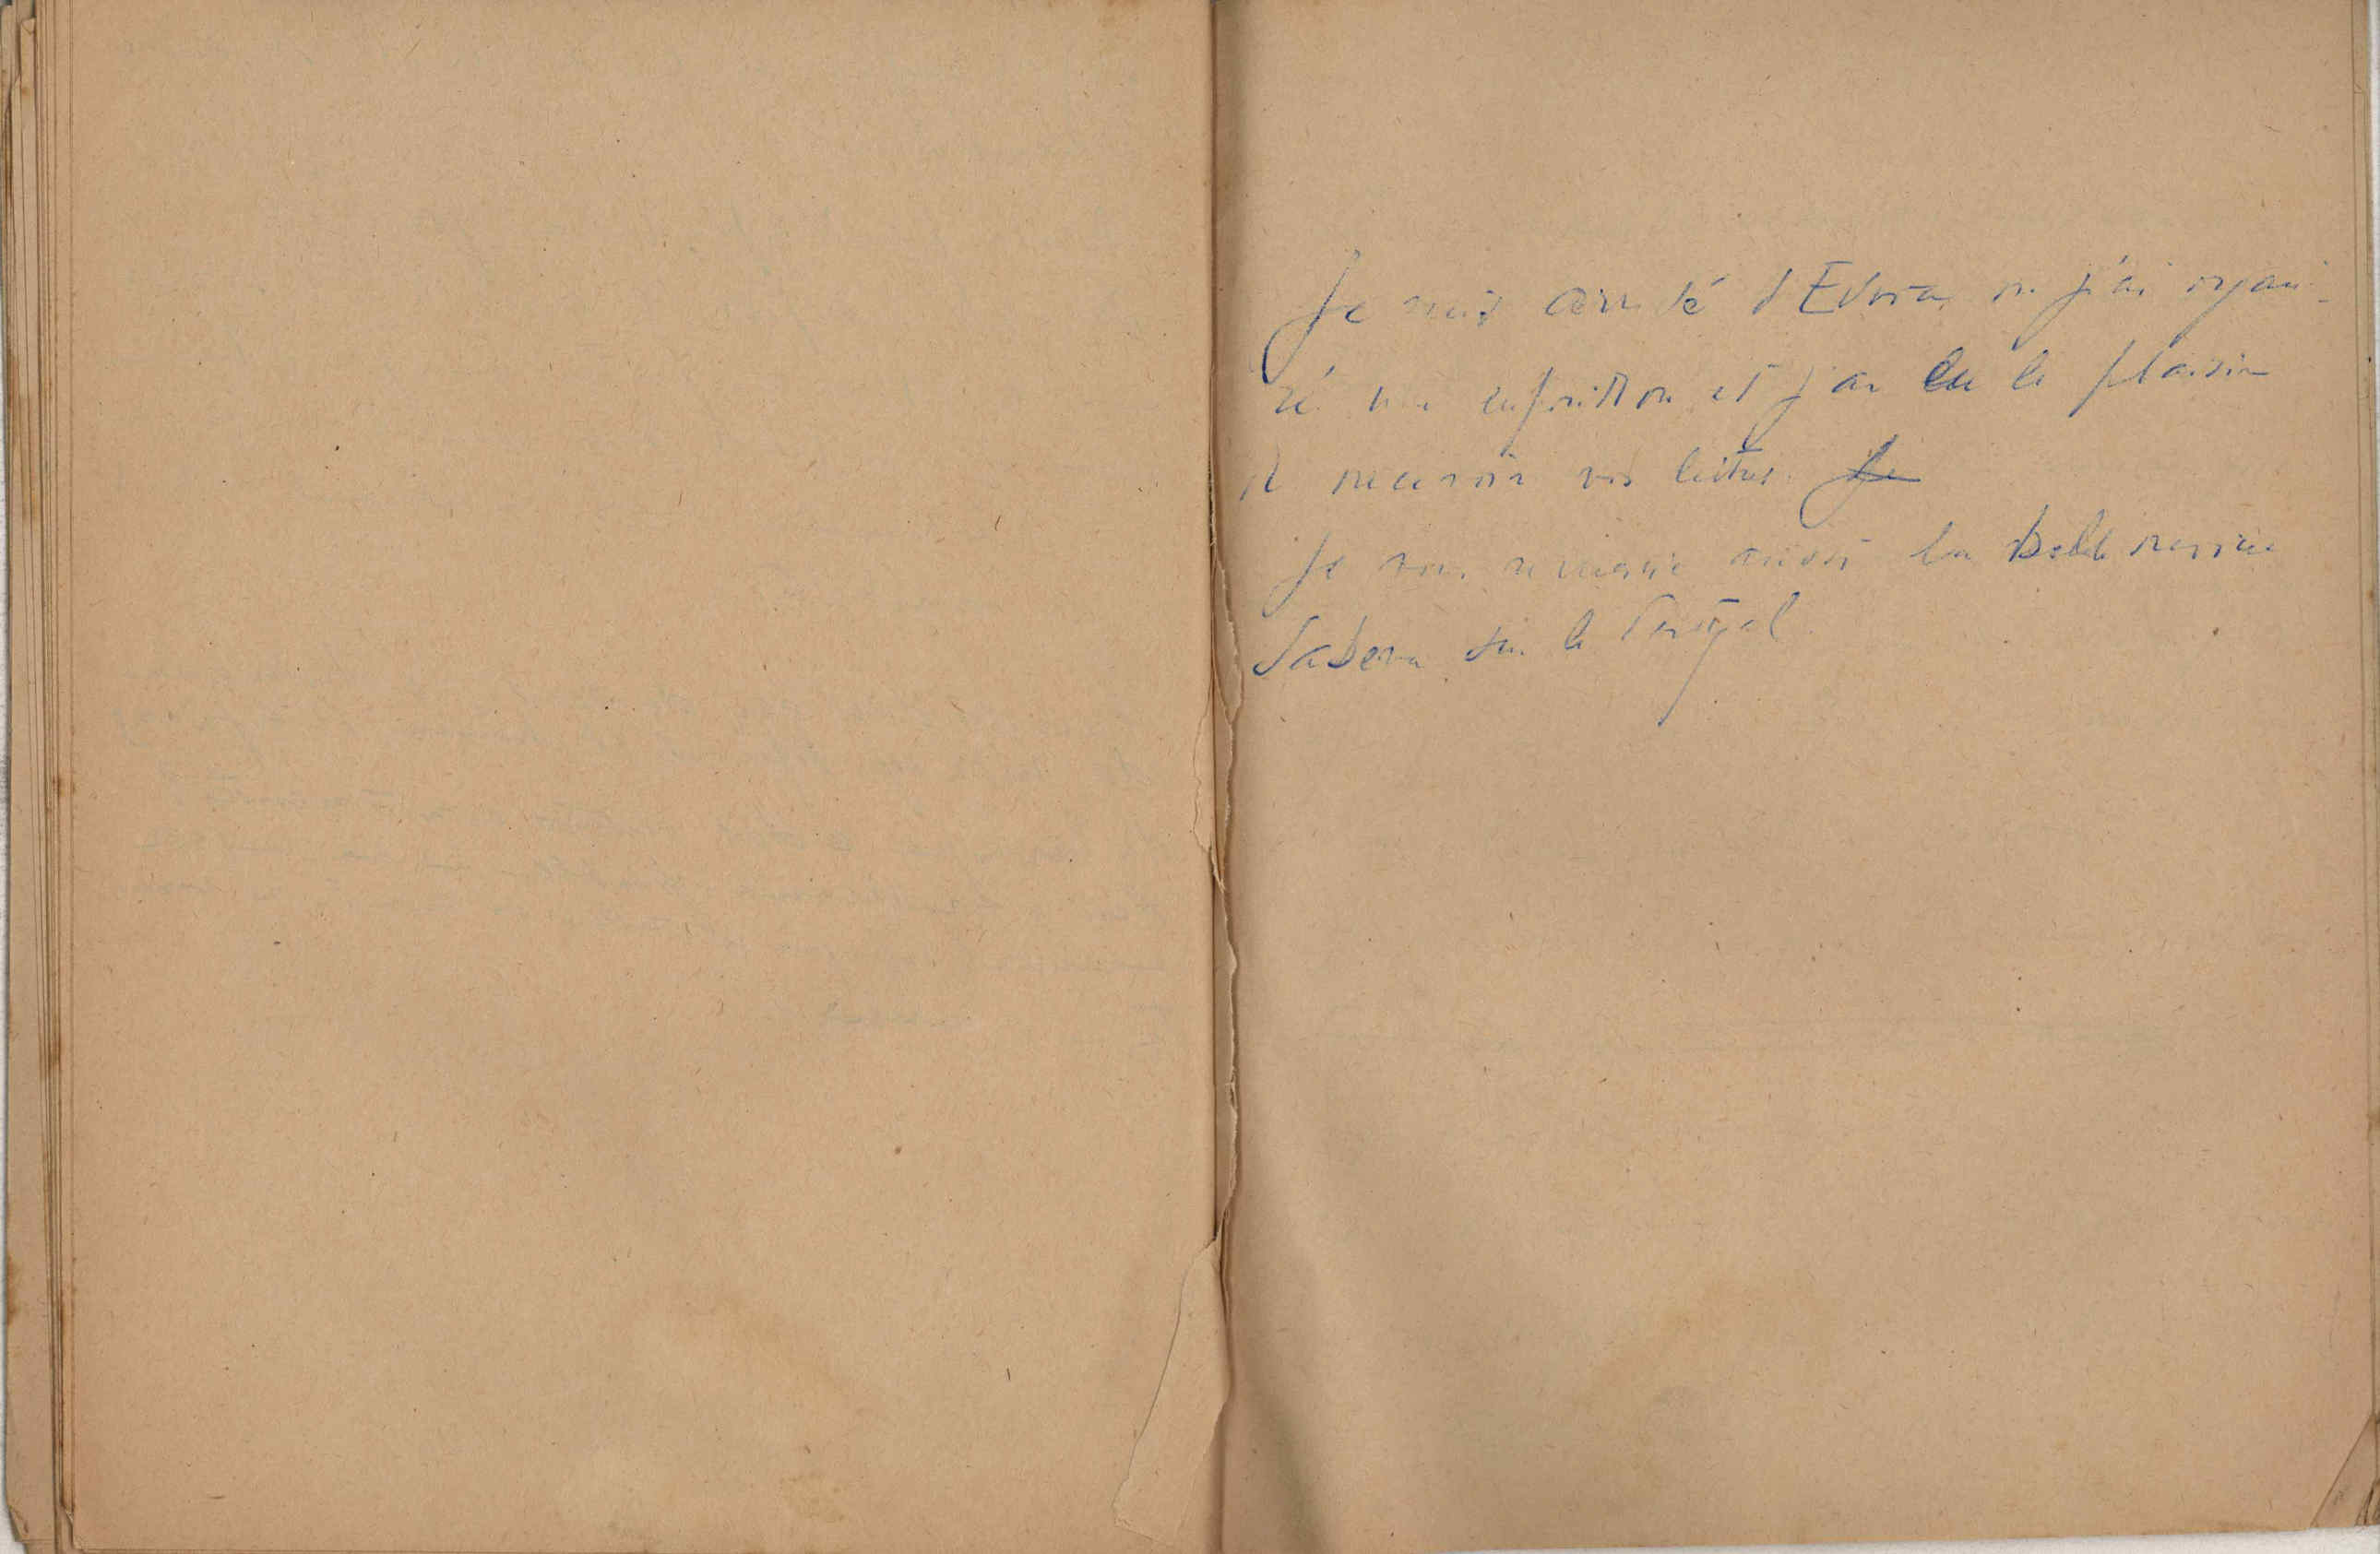 Je suis arrivé d'Evora, où j'ai organi-
sé une exposition et j'ai eu le plaisir
de recevoir vos lettres. Je
Je vous remercie aussi la belle revue
Sabena sur le Portugal.